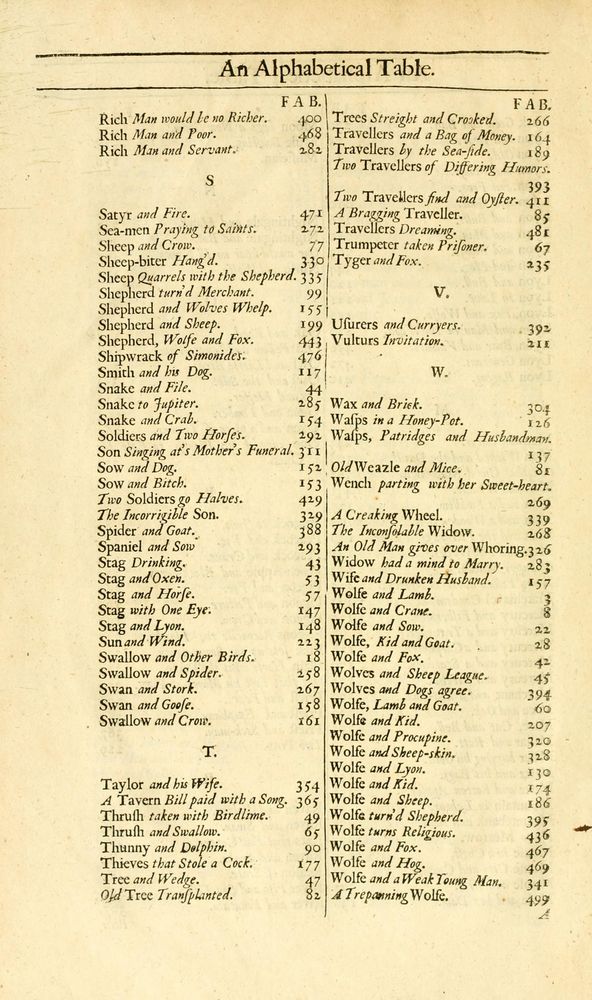 An Alphabetical Table.
FAB.
Rich Man would be no Richer. 400
Rich Man and Poor. 468
Rich Man and Servant. 282
S
Satyr and Fire. 471
Sea-men Praying to Saints. 272
Sheep and Crow. 77
Sheep-biter Hang'd. 330
Sheep Quarrels with the Shepherd. 335
Shepherd turn'd Merchant. 99
Shepherd and Wolves Whelp. 155
Shepherd and Sheep. 199
Shepherd, Wolfe and Fox. 443
Shipwrack of Simonides. 476
Smith and his Dog. 117
Snake and File. 44
Snake to Jupiter. 285
Snake and Crab. 154
Soldiers and Two Horſes. 292
Son Singing at's Mother's Funeral. 311
Sow and Dog. 152
Sow and Bitch. 153
Two Soldiers go Halves. 429
The Incorrigible Son. 329
Spider and Goat. 388
Spaniel and Sow 293
Stag Drinking. 43
Stag and Oxen. 53
Stag and Horſe. 57
Stag with One Eye. 147
Stag and Lyon. 148
Sun and Wind. 223
Swallow and Other Birds. 18
Swallow and Spider. 258
Swan and Stork. 267
Swan and Gooſe. 158
Swallow and Crow. 161
T.
Taylor and his Wife. 354
A Tavern Bill paid with a Song. 365
Thruſh taken with Birdlime. 49
Thruſh and Swallow. 65
Thunny and Dolphin. 90
Thieves that Stole a Cock. 177
Tree and Wedge. 47
Old Tree Tranſplanted. 82
FAB.
Trees Streight and Crooked. 266
Travellers and a Bag of Money. 164
Travellers by the Sea-ſide. 189
Two Travellers of Differing Humors.
393
Two Travellers find and Oyſter. 411
A Bragging Traveller. 85
Travellers Dreaming. 481
Trumpeter taken Priſoner. 67
Tyger and Fox. 235
V.
Uſurers and Curryers. 392
Vulturs Invitation. 211
W.
Wax and Brick. 304
Waſps in a Honey-Pot. 126
Waſps, Patridges and Husbandman.
137
Old Weazle and Mice. 81
Wench parting with her Sweet-heart.
269
A Creaking Wheel. 339
The Inconſolable Widow. 268
An Old Man gives over Whoring. 326
Widow had a mind to Marry. 283
Wife and Drunken Husband. 157
Wolfe and Lamb. 3
Wolfe and Crane. 8
Wolfe and Sow. 22
Wolfe, Kid and Goat. 28
Wolfe and Fox. 42
Wolves and Sheep League. 45
Wolves and Dogs agree. 394
Wolfe, Lamb and Goat. 60
Wolfe and Kid. 207
Wolfe and Procupine. 320
Wolfe and Sheep-skin. 328
Wolfe and Lyon. 130
Wolfe and Kid. 174
Wolfe and Sheep. 186
Wolfe turn'd Shepherd. 395
Wolfe turns Religious. 436
Wolfe and Fox. 467
Wolfe and Hog. 469
Wolfe and a Weak Young Man. 341
A Trepanning Wolfe. 499
A